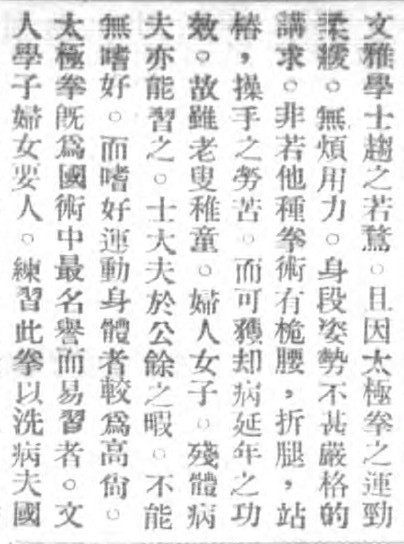 文雅學士趨之若鶩。且因太極拳之運勁
柔緩。無煩用力。身段姿勢不甚嚴格的
講求。非若他種拳術有桅腰，折腿，站
樁，操手之勞苦。而可獲却病延年之功
效。故雖老叟稚童。婦人女子。殘體病
夫亦能習之。士大夫於公餘之暇。不能
無嗜好。而嗜好運動身體者較爲高尙。
太極拳既爲國術中最名譽而易習者。文
人學子婦女要人。練習此拳以洗病夫國